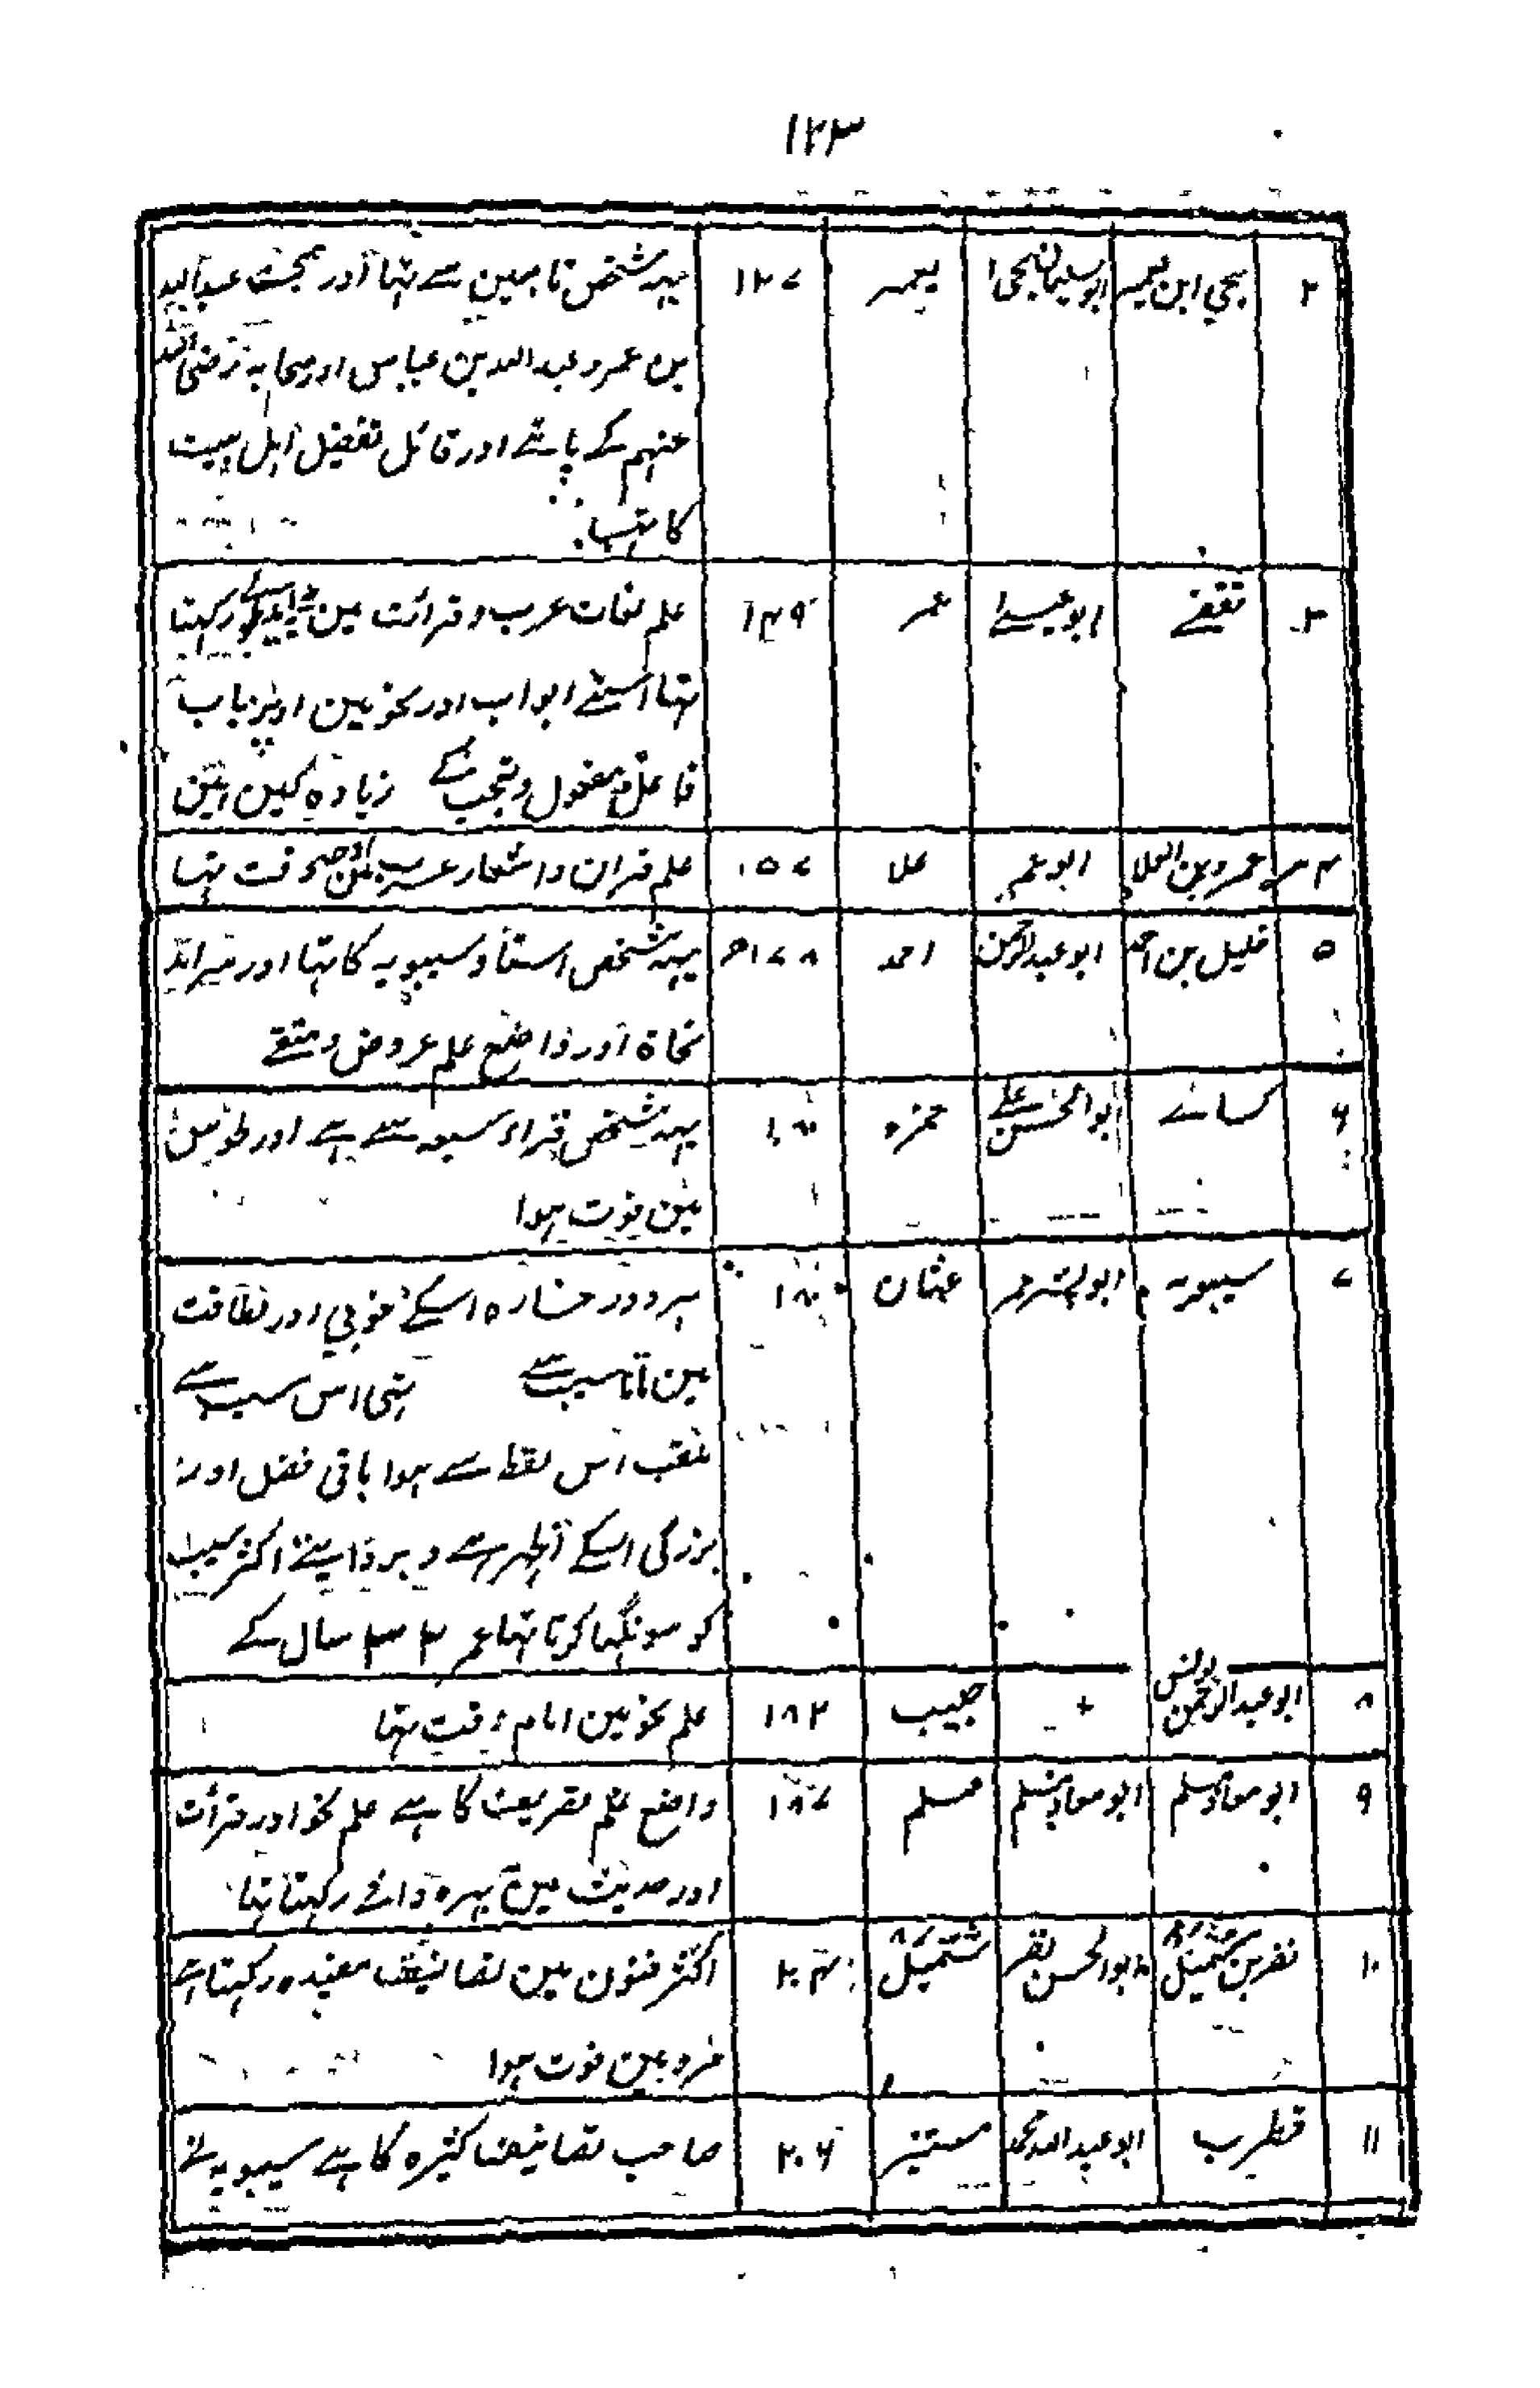 ۱۲۳
۲ یحي ابن یعمر ابو سلیمان یحی یعمر ۱۲۷ یہہ شخص تابعین سے تہا اور صحبت عبداللہ
بن عمر و عبد اللہ بن عباس اور صحابہ رضی اللہ
عنہم کے پائے اور قائل تفضیل اہل بیت
کا تہا
۳ ثقفے ابو عیسے عمر ۱۴۹ علم لغات عرب و قرائت مین رکہتا
تہا اسنے ابواب اور نحو مین اوپر باب
فاعل و مفعول و تعجب کے زیادہ کین
۴ عمرو بن العلا ابو عمر علا ۱۵۷ علم قران و اشعار عرب وقت تہا
۵ خلیل بن احمد ابو عبدالرحمن احمد ۱۷۸ یہہ شخص استاد سیبویہ کا تہا اور
نحاة اور واضع علم عروض و
۶ کسائے ابوالحسن علے حمزہ ۱۸۰ یہہ شخص قراء سبعہ سے ہے اور طوس
مین فوت ہوا
۷ سیبویہ ابو بشر عمر عثمان ۱۸۰ ہر دو رخسارہ اسکے خوبي اور لطافت
مین مانا سیب سے تہی اس سبب سے
ملقب اس لفظ سے ہوا باقی فضل اور
بزرگی اسکے اظہر ہے و بروایتے اکثر سیب
کو سونگہا کرتا تہا عمر ۳۲ سال کے
۸ ابو عبد الرحمن یونس + حبیب ۱۸۲ علم نحو مین امام وقت تہا
۹ ابو معاذ مسلم ابو معاذ مسلم مسلم ۱۸۷ واضع علم تصریف کا ہے علم نحو اور قرائت
اور حدیث مین بہرہ وافے رکہتا تہا
۱۰ نضر بن شمیل ابوالحسن نضر شمیل ۲۰۴ اکثر فنون مین تصانیف مفیدہ رکہتا ہے
مرو مین فوت ہوا
۱۱ قطرب ابو عبد اللہ محمد مستنیر ۲۰۶ صاحب تصانیف کثیرہ کا ہے سیبویہ نے